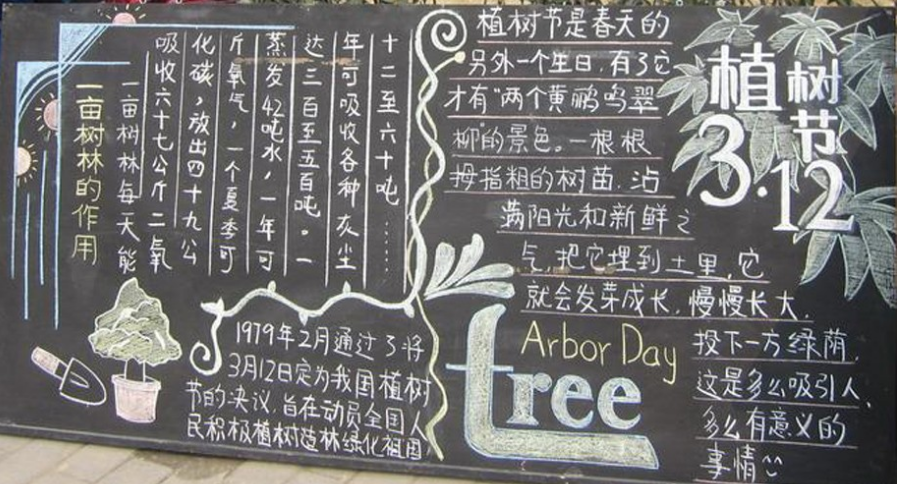 一亩树林的作用
一亩树林每天能
吸收六十七公斤二氧
化碳，放出四十九公
斤氧气，一个夏季可
蒸发42吨水，一年可
达三百至五百吨。一
年可吸收各种灰尘
十二至六十吨……
1979年2月通过了将
3月12日定为我国植树
节的决议，旨在动员全国人
民积极植树造林绿化祖国
植树节是春天的
另外一个生日，有了它
才有“两个黄鹏鸣翠
柳”的景色。一根根
拇指粗的树苗，沾
满阳光和新鲜之
气，把它埋到土里，它
就会发芽成长，慢慢长大，
投下一方绿荫，
这是多么吸引人，
多么有意义的
事情
植树节
3.12
Arbor Day
tree